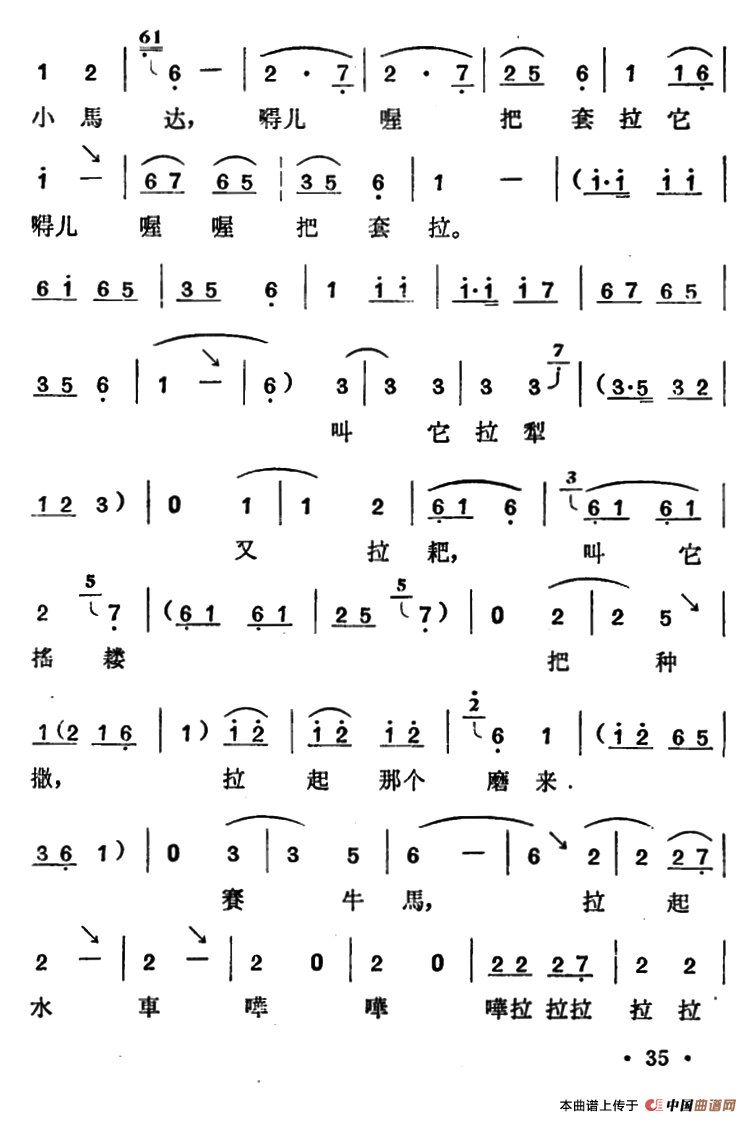 61
1 2 | 6 — | 2 · 7 | 2 · 7 | 25 6 | 1 16 |
小馬 达, 嘚儿 喔 把 套 拉 它
i — | 67 65 | 35 6 | 1 — | (i·i i i |
嘚儿 喔 喔 把 套 拉。
6i 65 | 35 6 | 1 i i | i·i i7 | 67 65 |
7
35 6 | 1 — | 6) 3 | 3 3 | 3 3 | (3·5 32 |
叫 它 拉 犁
3
12 3) | 0 1 | 1 2 | 61 6 | 61 61 |
又 拉 耙, 叫 它
5 5
2 7 | (61 61 | 25 7) | 0 2 | 2 5 |
搖 耧 把 种
2
1(2 16 | 1) i2 | i2 i2 | 6 1 | (i2 65 |
撒, 拉 起 那个 磨 来.
36 1) | 0 3 | 3 5 | 6 — | 6 2 | 2 27 |
賽 牛 馬, 拉 起
2 — | 2 — | 2 0 | 2 0 | 22 27 | 2 2 |
水 車 嘩 嘩 嘩拉 拉拉 拉 拉
· 35 ·
本曲谱上传于 中国曲谱网